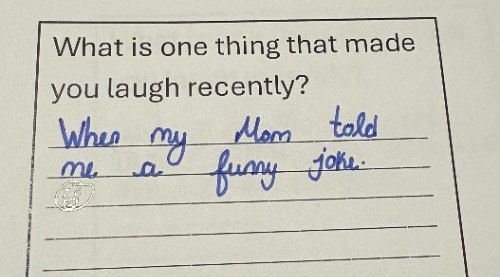 What is one thing that made
you laugh recently?
When my Mom told
me a funny joke.